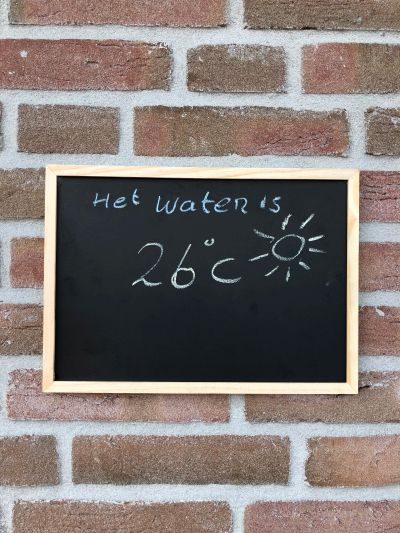 Het water is
26°C